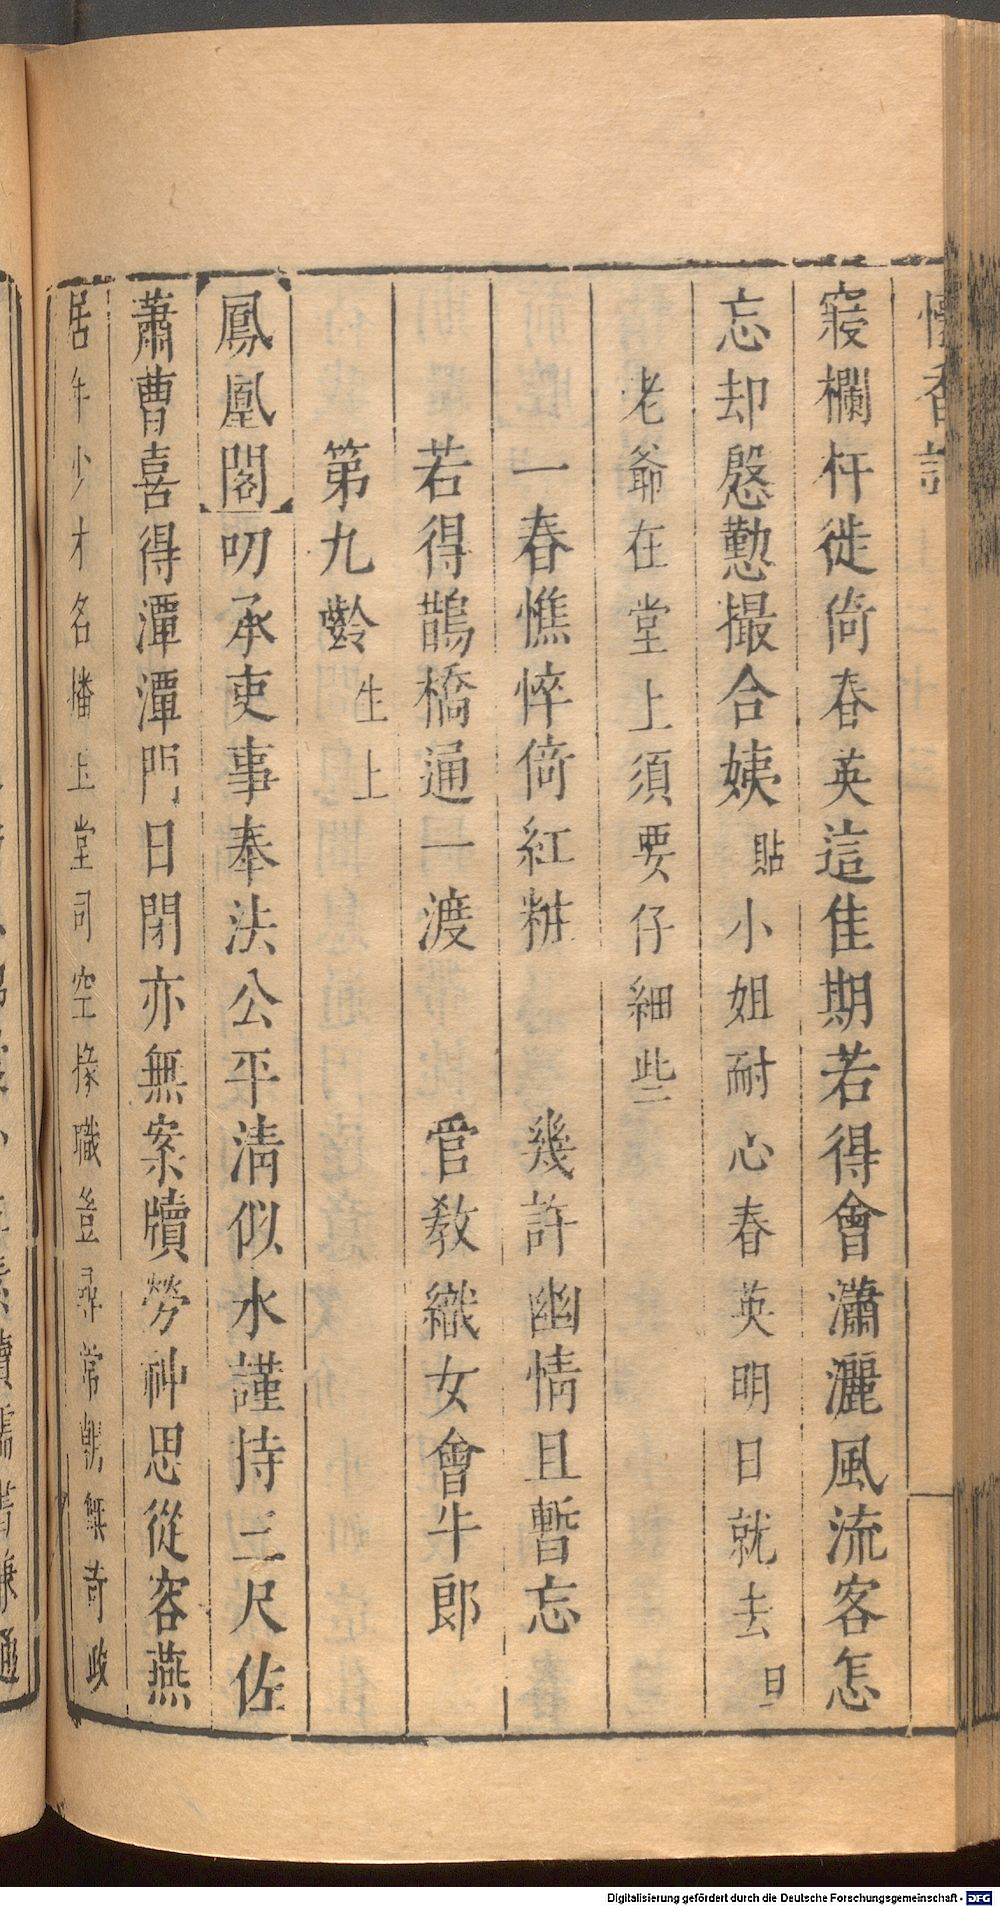 懷香記
寢欄杆徙倚春英這佳期若得會瀟灑風流客怎
忘却慇懃撮合姨貼小姐耐心春英明日就去旦
老爺在堂上須要仔細些
一春憔悴倚紅粧 幾許幽情且暫忘
若得鵲橋通一渡 官教織女會牛郎
第九齣 生上
鳳凰閣叨承吏事奉法公平清似水謹持三尺佐
蕭曹喜得潭潭門日閉亦無案牘勞神思從容燕
居年少才名播玉堂司空掾職豈尋常朝無苛政
Digitalisierung gefördert durch die Deutsche Forschungsgemeinschaft - DFG